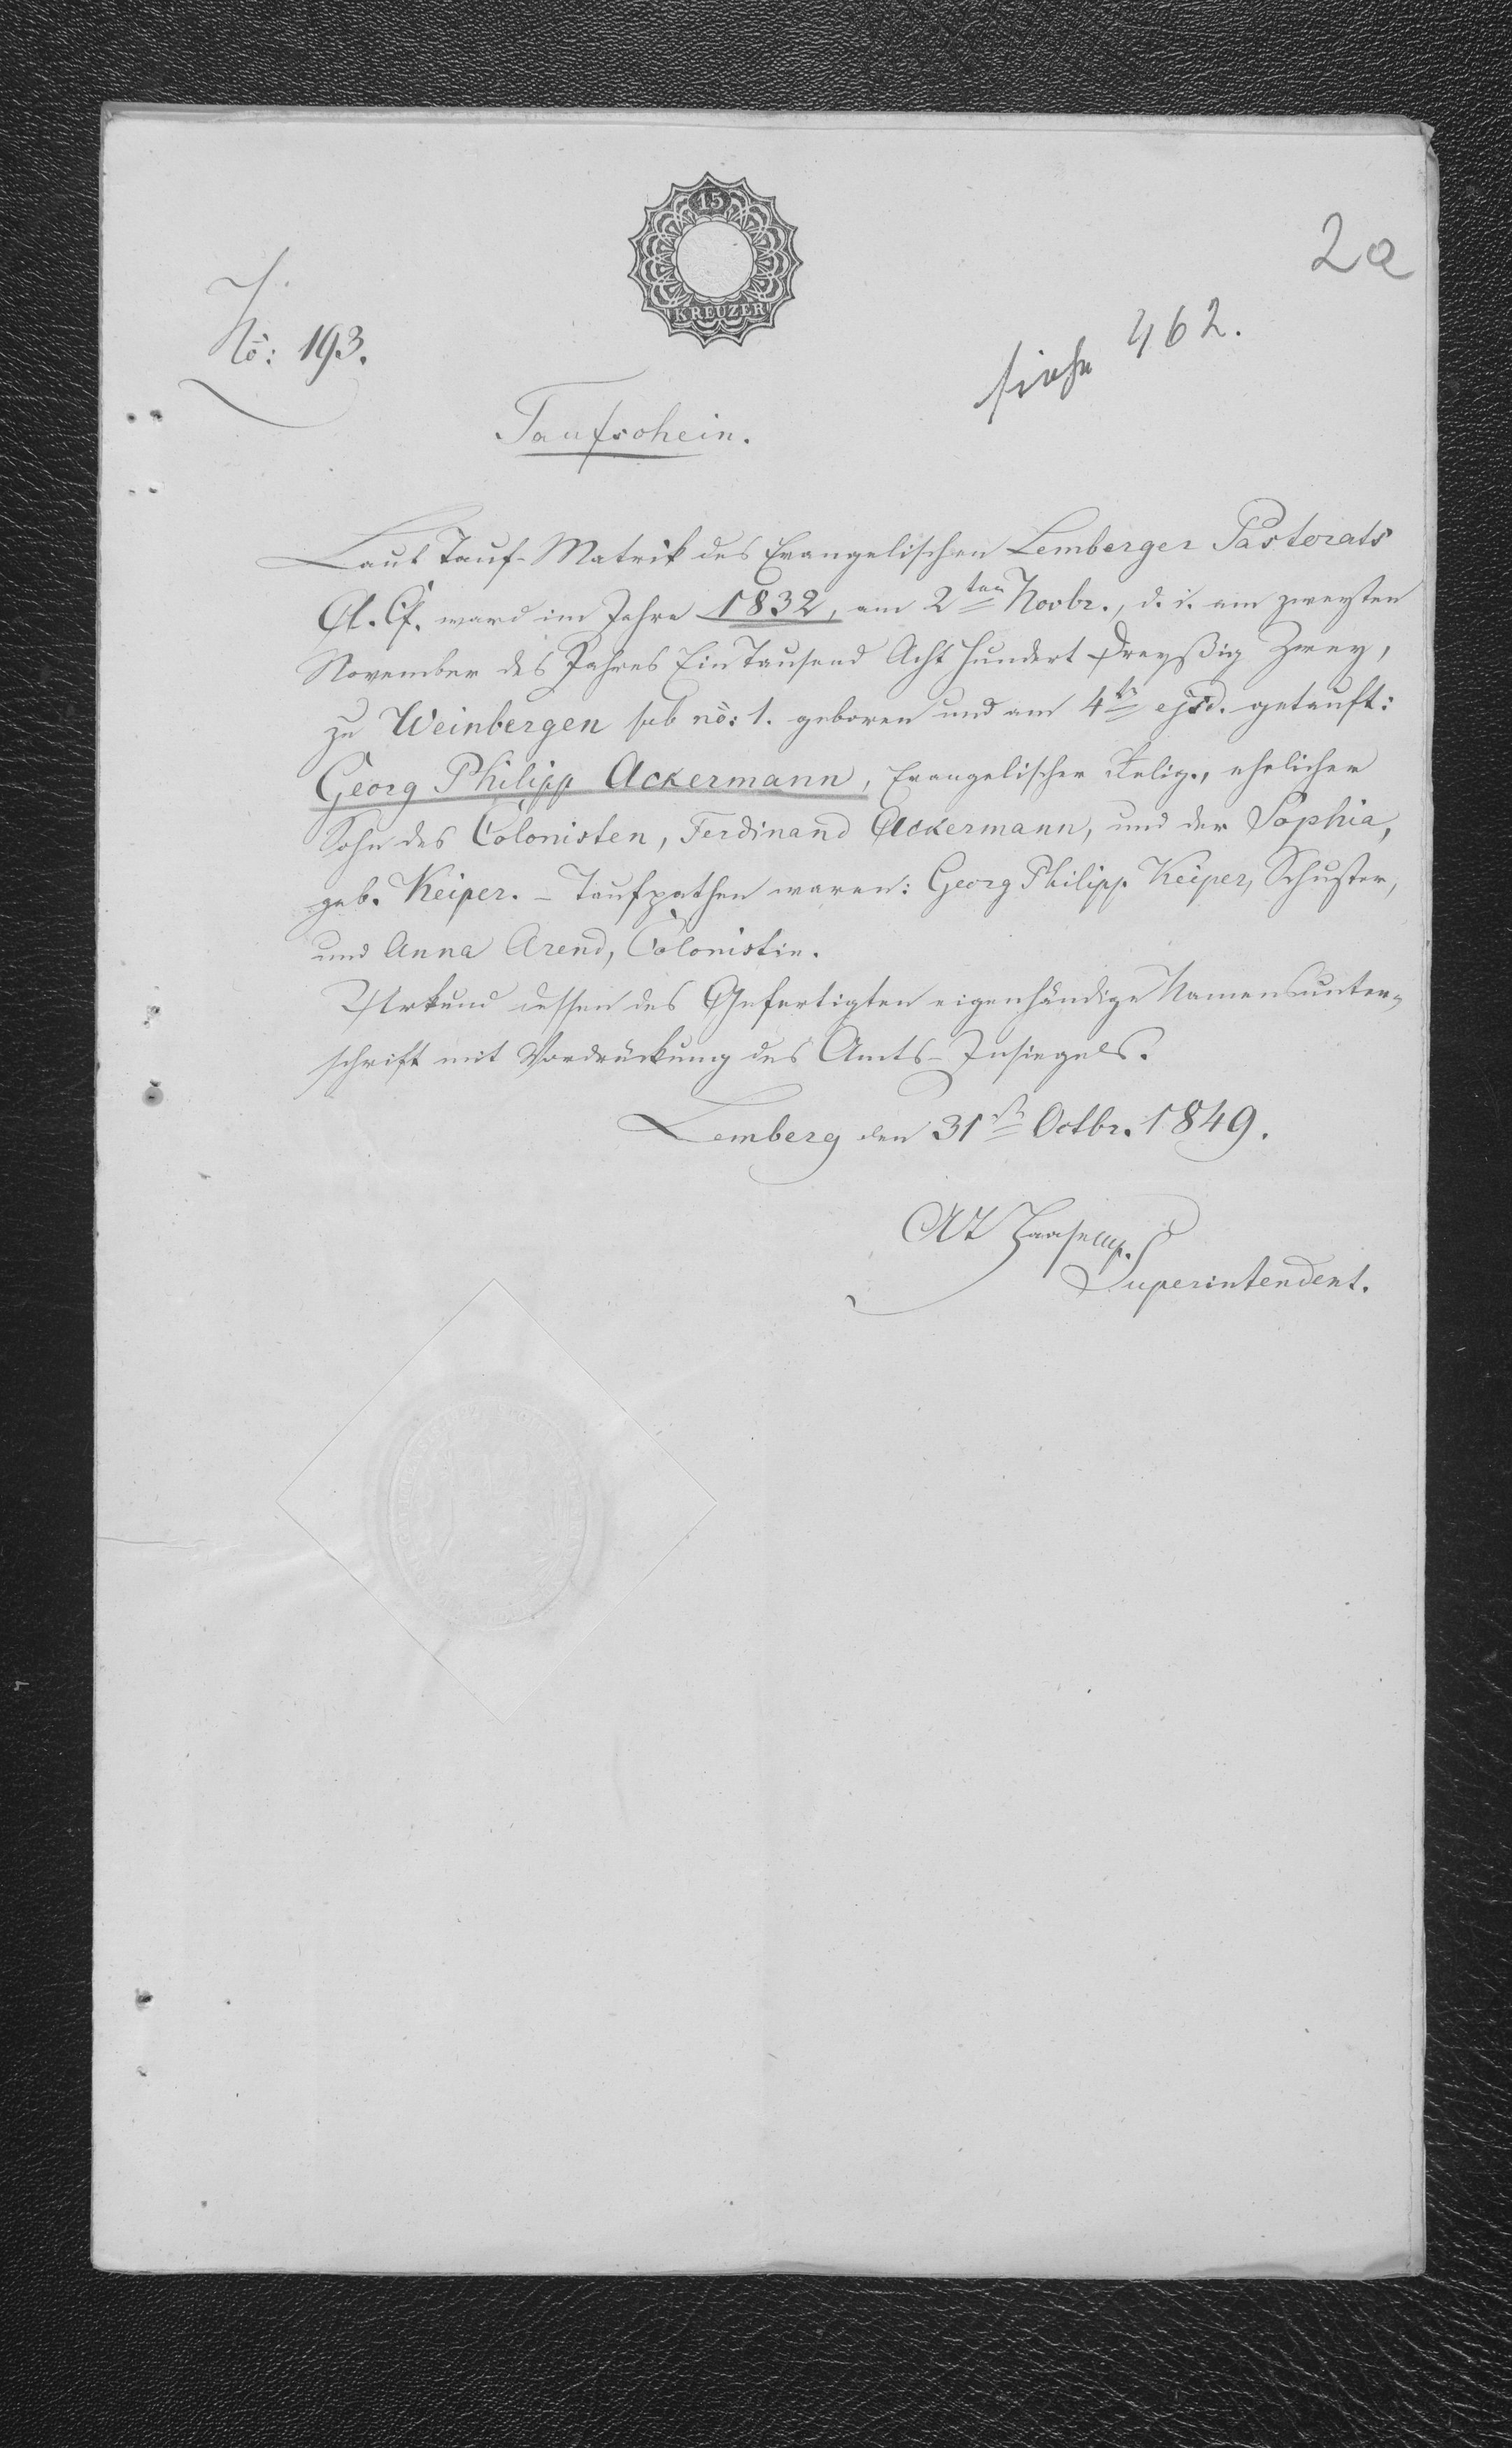 15
KREUZER
2a
No: 193.
siehe 462.
Taufschein.
Laut Tauf-Matrik des Evangelischen Lemberger Pastorats
A. C. ward im Jahre 1832, am 2ten Novbr., d. i. am zweyten
November des Jahres Ein Tausend Acht Hundert Dreyßig Zwey,
zu Weinbergen sub no: 1. geboren und am 4ten ejsd. getauft:
Georg Philipp Ackermann, Evangelischer Relig., ehelicher
Sohn des Colonisten, Ferdinand Ackermann, und der Sophia,
geb. Keiper. - Taufpathen waren: Georg Philipp Keiper, Schuster,
und Anna Arend, Colonistin.
Urkund dessen des Gefertigten eigenhändige Namensunter=
schrift mit Vordrückung des Amts-Insiegels.
Lemberg den 31st Octbr. 1849.
Haase mp.
Superintendent.